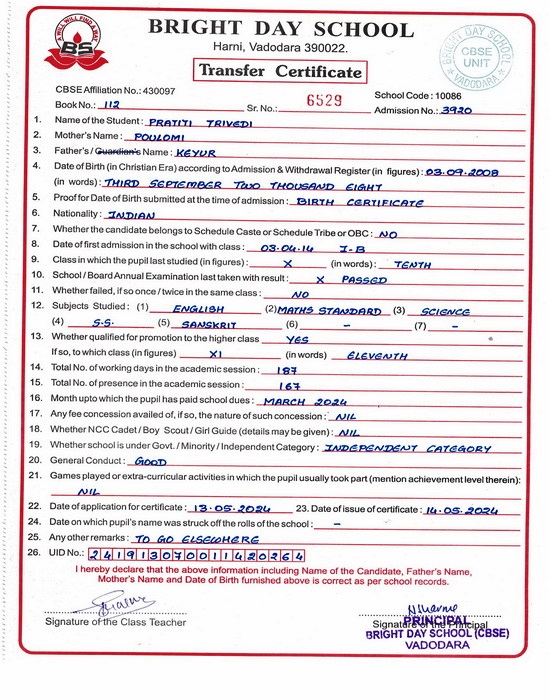 A WILL WILL FIND A WAY
BS
BRIGHT DAY SCHOOL
Harni, Vadodara 390022.
Transfer Certificate
BRIGHT DAY SCHOOL
CBSE
UNIT
VADODARA
CBSE Affiliation No.: 430097
School Code : 10086
Book No.: 112 Sr. No.: 6529 Admission No.: 3920
1. Name of the Student : PRATITI TRIVEDI
2. Mother's Name : POULOMI
3. Father's / Guardian's Name : KEYUR
4. Date of Birth (in Christian Era) according to Admission & Withdrawal Register (in figures) : 03.09.2008
(in words) : THIRD SEPTEMBER TWO THOUSAND EIGHT
5. Proof for Date of Birth submitted at the time of admission : BIRTH CERTIFICATE
6. Nationality : INDIAN
7. Whether the candidate belongs to Schedule Caste or Schedule Tribe or OBC : NO
8. Date of first admission in the school with class : 03.04.14 I-B
9. Class in which the pupil last studied (in figures) : X (in words) : TENTH
10. School / Board Annual Examination last taken with result : X PASSED
11. Whether failed, if so once / twice in the same class : NO
12. Subjects Studied : (1) ENGLISH (2) MATHS STANDARD (3) SCIENCE
(4) S.S. (5) SANSKRIT (6) - (7) -
13. Whether qualified for promotion to the higher class YES
If so, to which class (in figures) XI (in words) ELEVENTH
14. Total No. of working days in the academic session : 187
15. Total No. of presence in the academic session : 167
16. Month upto which the pupil has paid school dues : MARCH 2024
17. Any fee concession availed of, if so, the nature of such concession : NIL
18. Whether NCC Cadet / Boy Scout / Girl Guide (details may be given) : NIL
19. Whether school is under Govt. / Minority / Independent Category : INDEPENDENT CATEGORY
20. General Conduct : GOOD
21. Games played or extra-curricular activities in which the pupil usually took part (mention achievement level therein) :
NIL
22. Date of application for certificate : 13.05.2024 23. Date of issue of certificate : 14.05.2024
24. Date on which pupil's name was struck off the rolls of the school : -
25. Any other remarks : TO GO ELSEWHERE
26. UID No.: 241913070011420264
I hereby declare that the above information including Name of the Candidate, Father's Name,
Mother's Name and Date of Birth furnished above is correct as per school records.
Signature of the Class Teacher
Signature of the Principal
PRINCIPAL
BRIGHT DAY SCHOOL (CBSE)
VADODARA